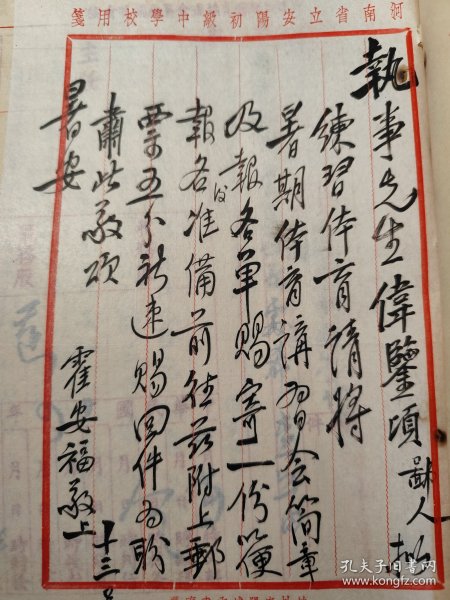 河南省立安陽初級中學校用箋
執事先生偉鑒頃鄙人拟
練習体育請將
暑期体育講習会簡章
及報名單賜寄一份便
報名以准備前往茲附上郵
票五分祈速賜回件为盼
肅此敬頌
暑安
霍安福敬上
十三号
孔夫子旧书网
book.kongfz.com